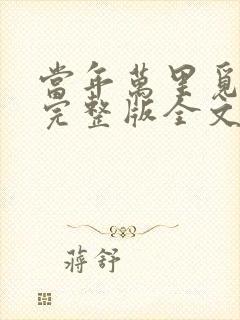 當年萬里覓
完整版全文
蔣舒